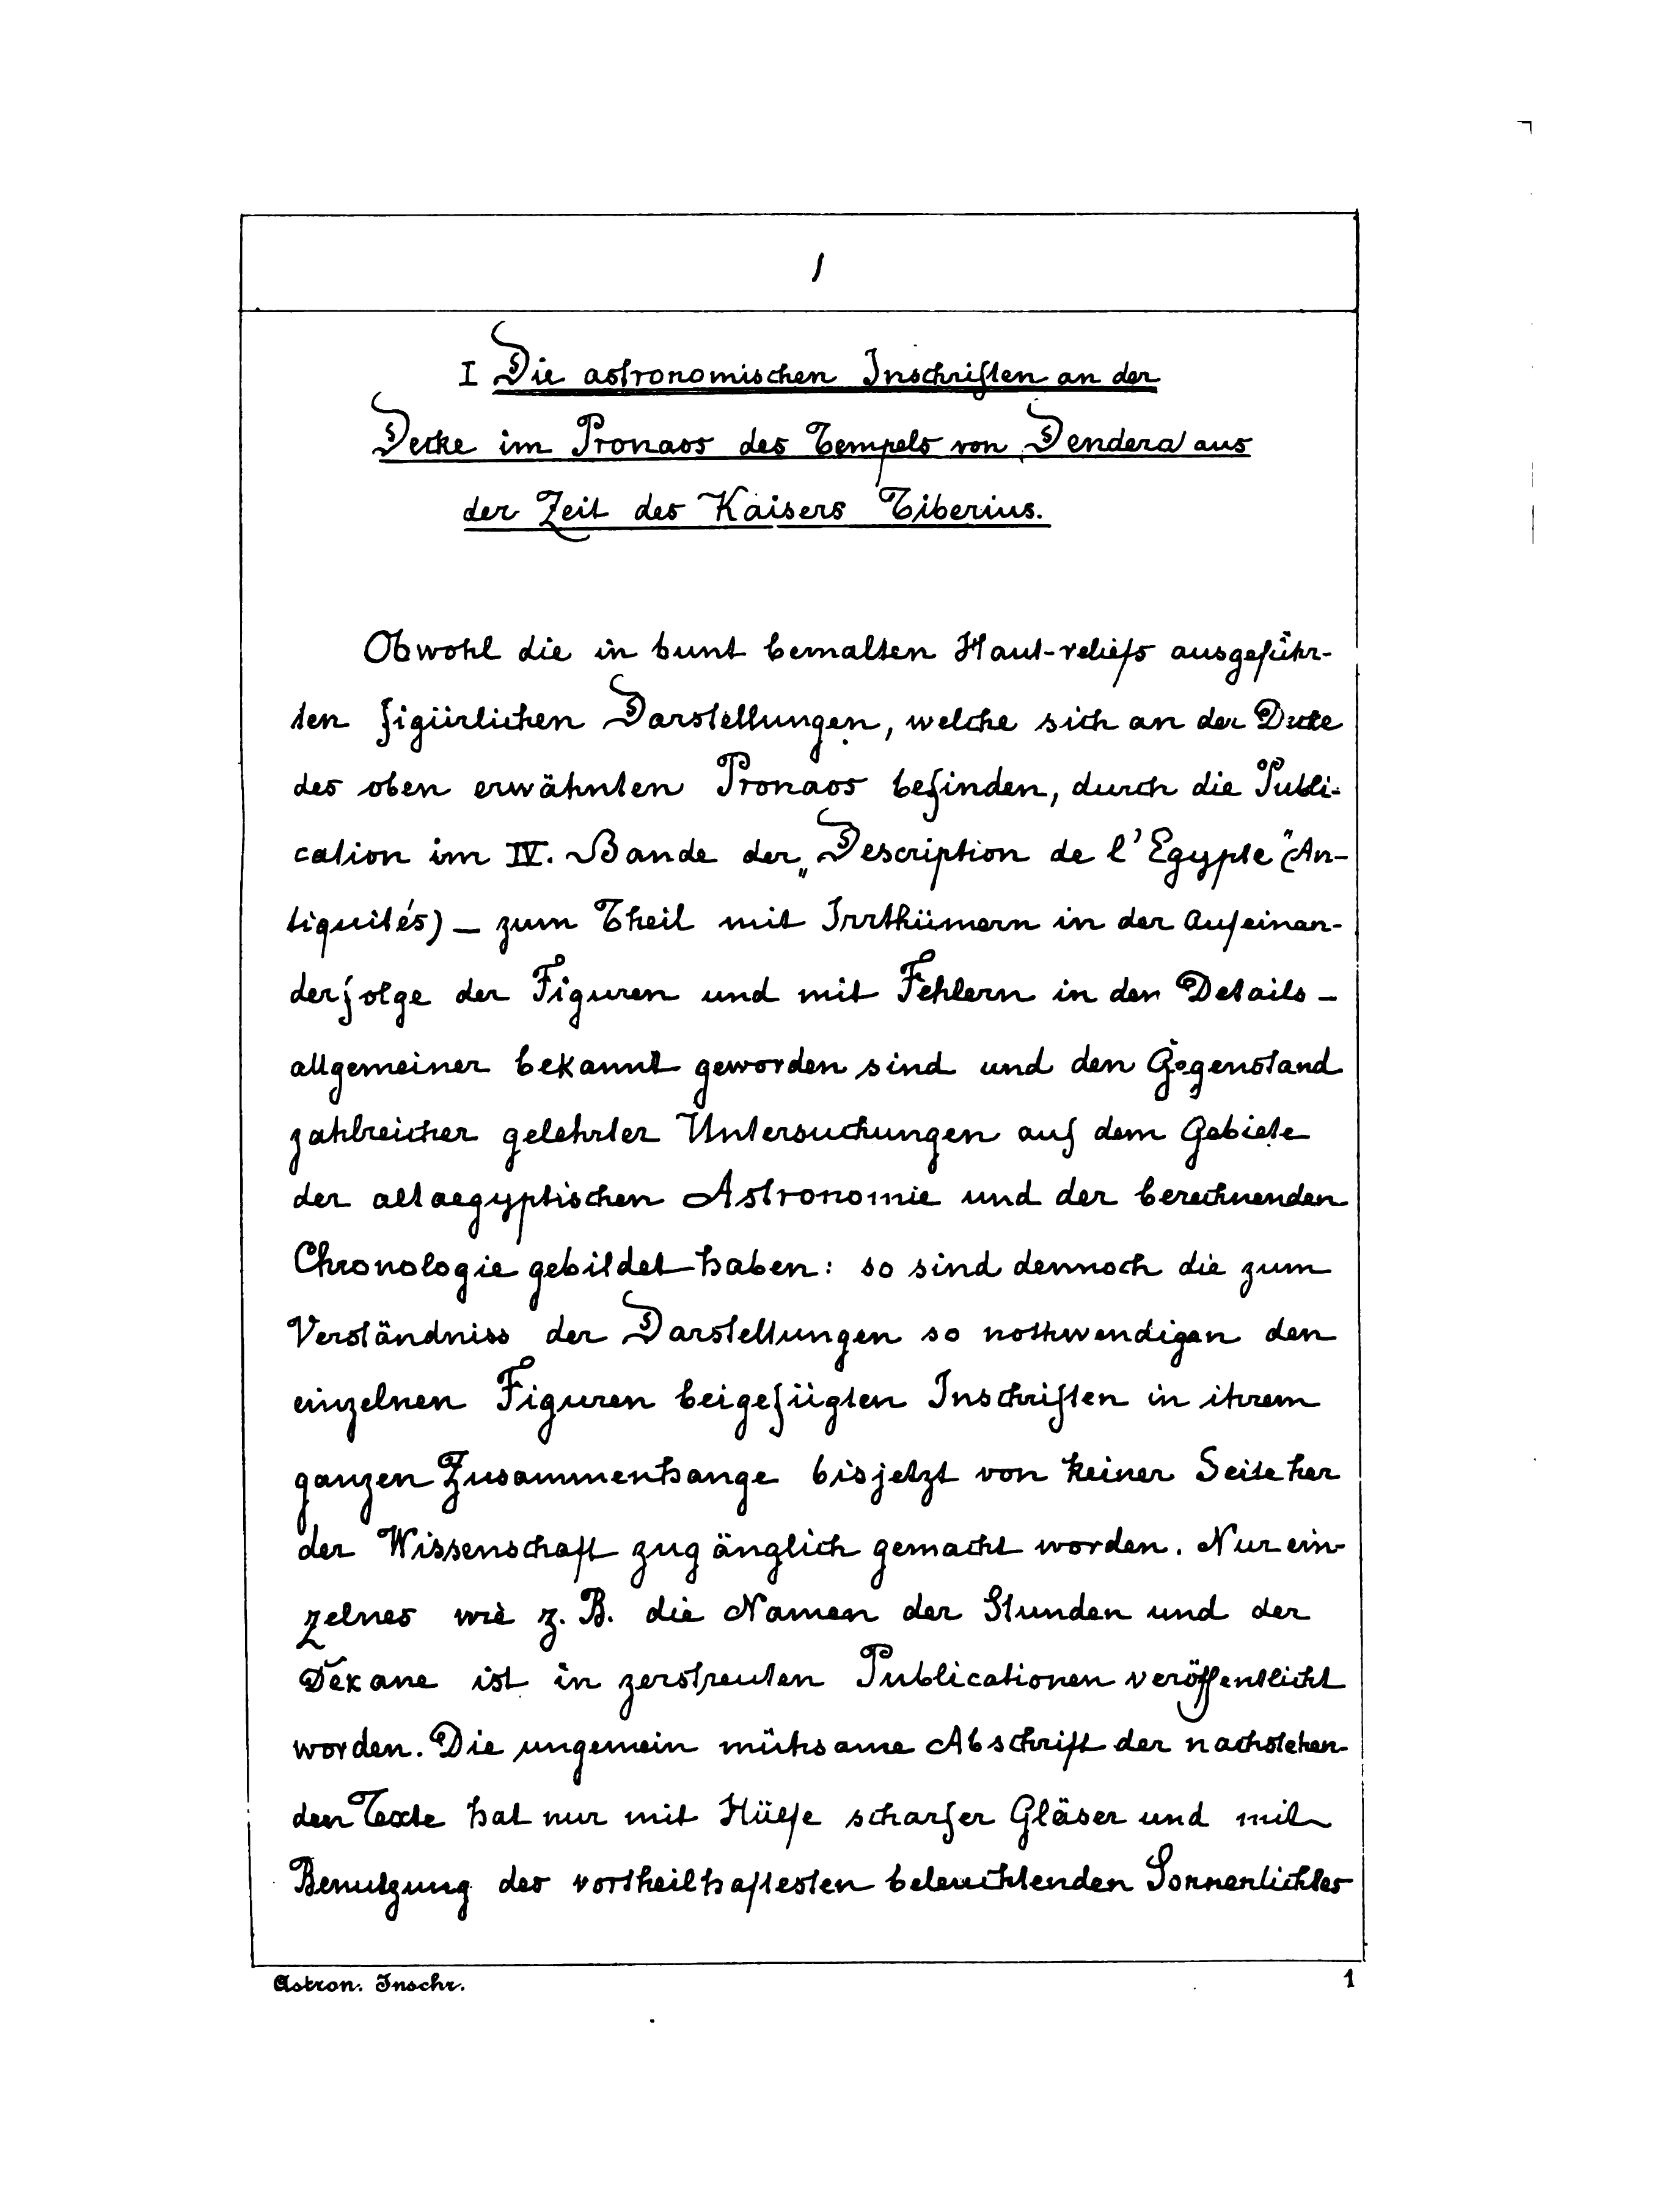 1
I Die astronomischen Inschriften an der
Decke im Pronaos des Tempels von Dendera aus
der Zeit des Kaisers Tiberius.
Obwohl die in bunt bemalten Haut-reliefs ausgeführ-
ten figürlichen Darstellungen, welche sich an der Decke
des oben erwähnten Pronaos befinden, durch die Publi-
cation im IV. Bande der „Description de l'Egypte" (An-
tiquités) – zum Theil mit Irrthümern in der Aufeinan-
derfolge der Figuren und mit Fehlern in den Details –
allgemeiner bekannt geworden sind und den Gegenstand
zahlreicher gelehrter Untersuchungen auf dem Gebiete
der altaegyptischen Astronomie und der berechnenden
Chronologie gebildet haben: so sind dennoch die zum
Verständniss der Darstellungen so nothwendigen den
einzelnen Figuren beigefügten Inschriften in ihrem
ganzen Zusammenhange bisjetzt von keiner Seite her
der Wissenschaft zugänglich gemacht worden. Nur ein-
zelnes wie z. B. die Namen der Stunden und der
Dekane ist in zerstreuten Publicationen veröffentlicht
worden. Die ungemein mühsame Abschrift der nachstehen-
den Texte hat nur mit Hülfe scharfer Gläser und mit
Benutzung des vortheilhaftesten beleuchtenden Sonnenlichtes
Astron. Inschr.
1